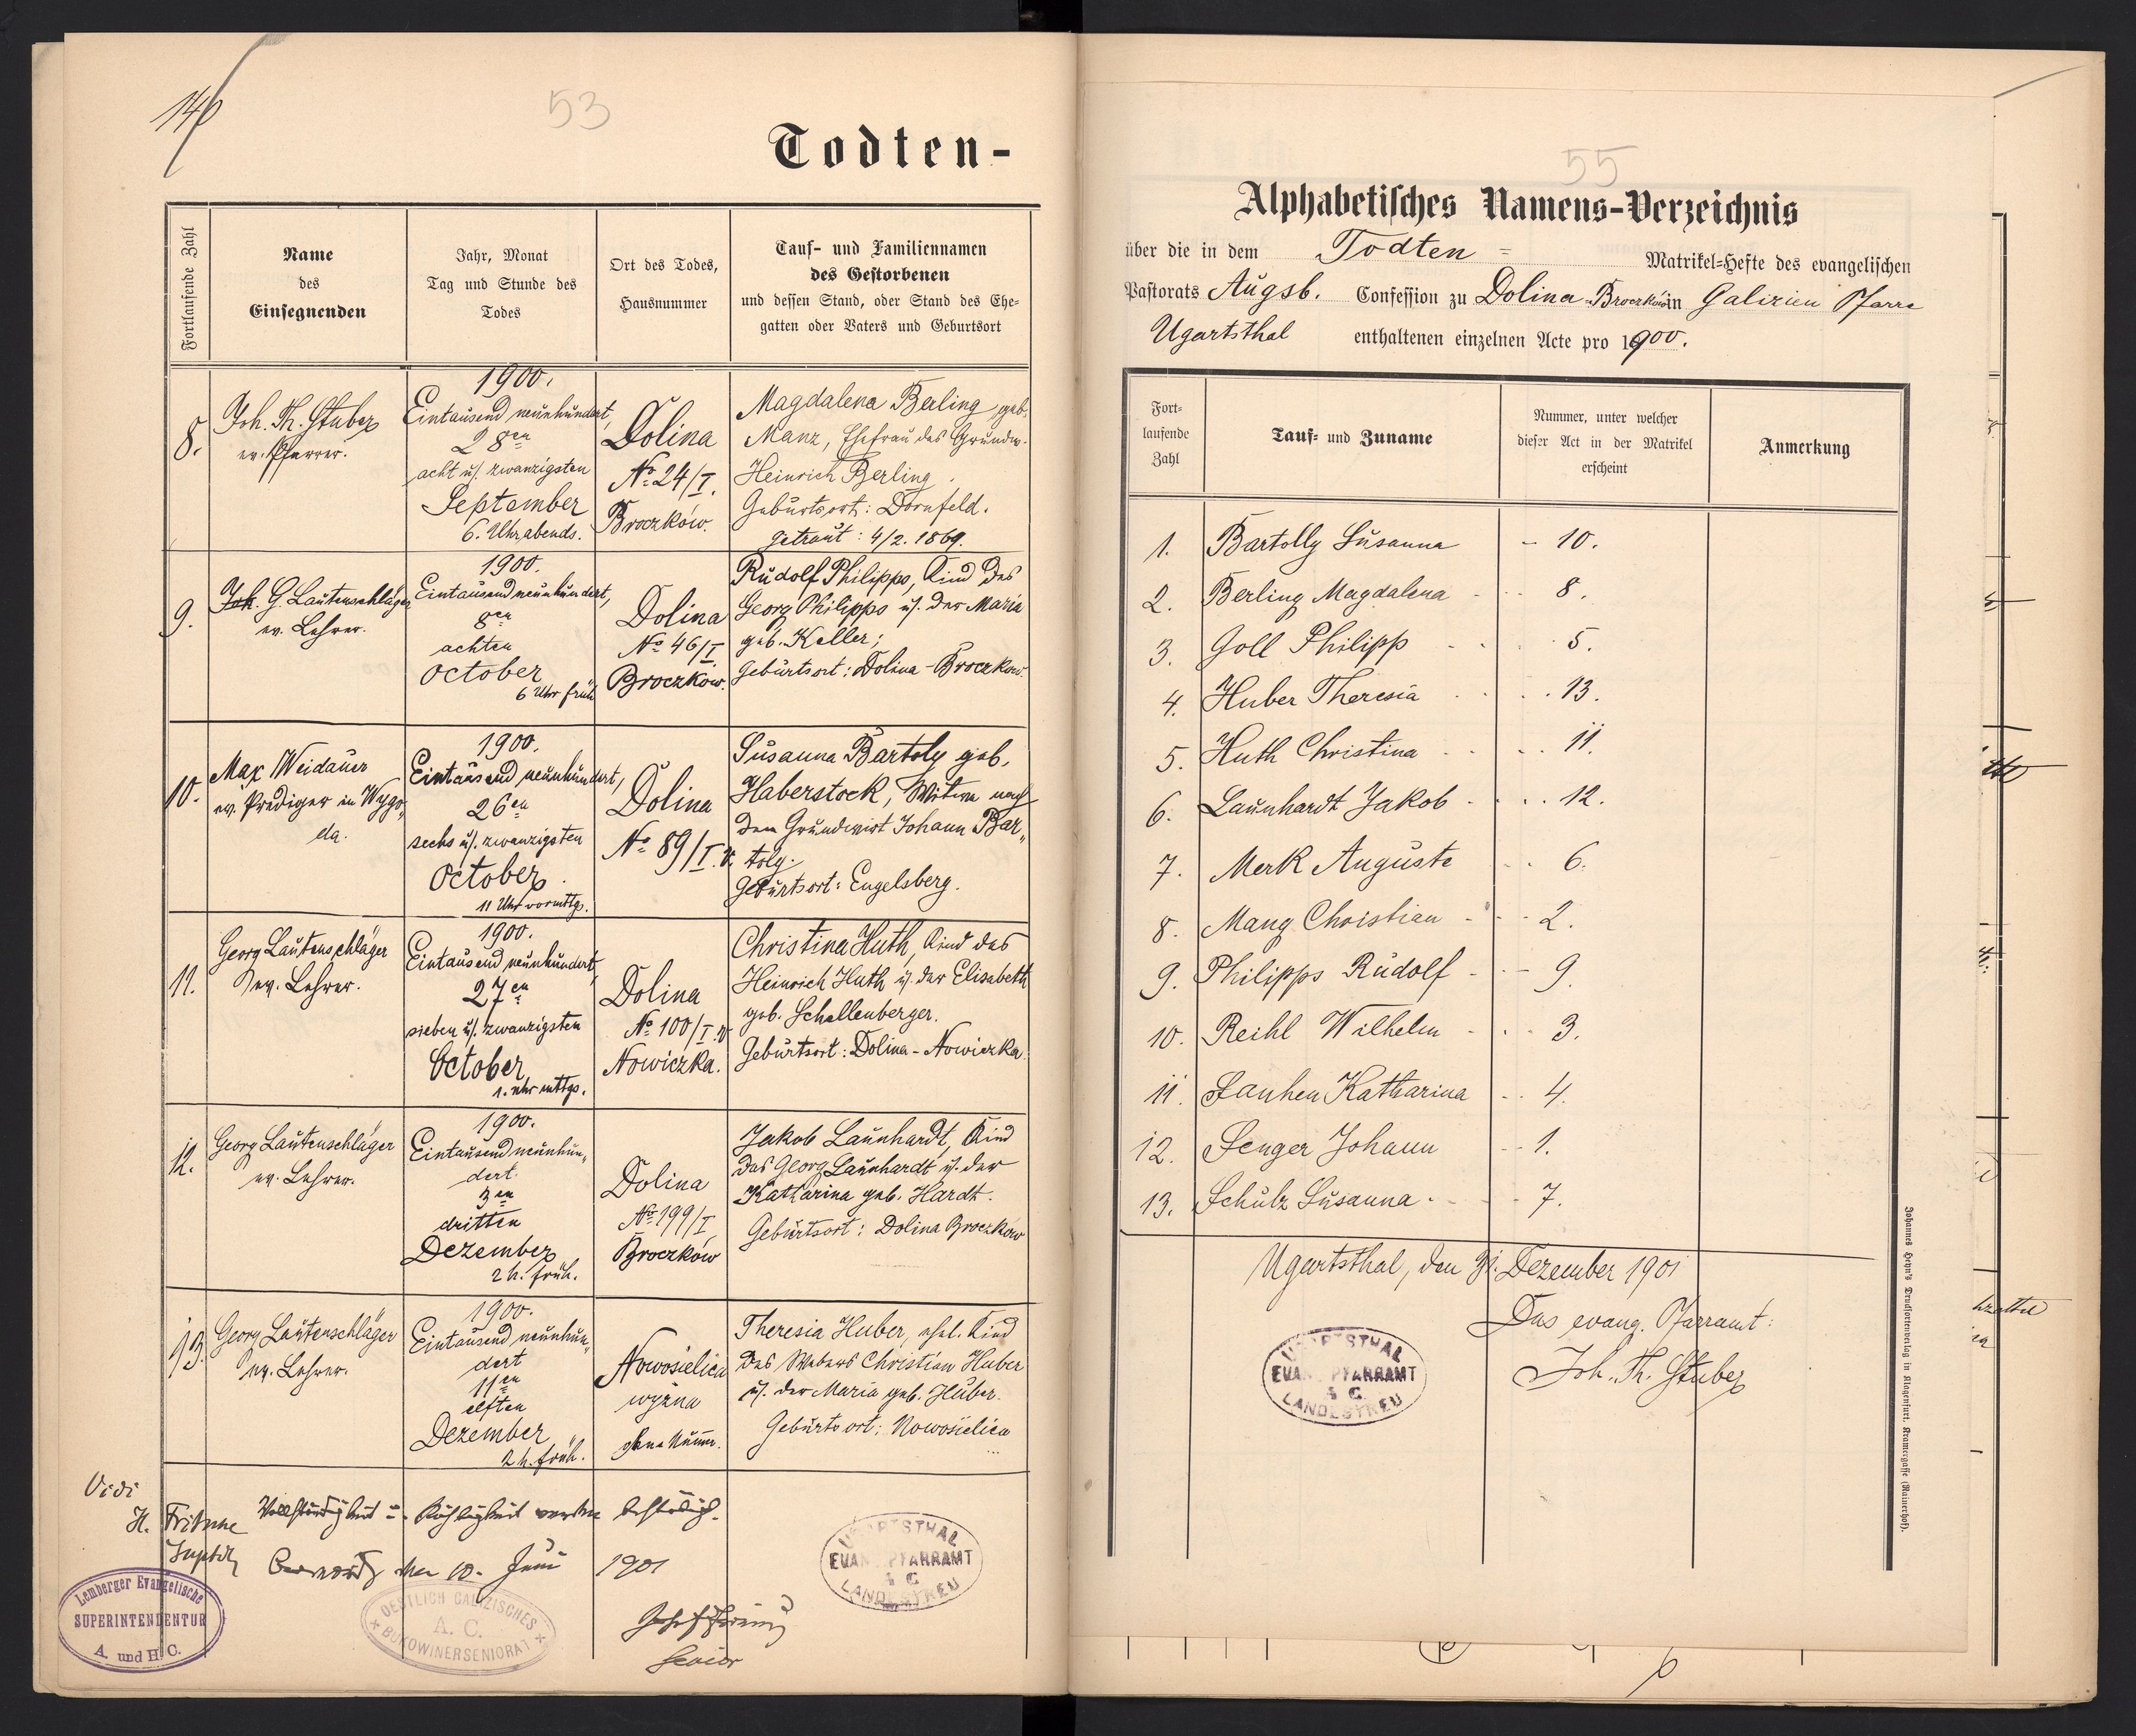 146
53
Todten-
Fortlaufende Zahl
Name
des
Einsegnenden
Jahr, Monat
Tag und Stunde des
Todes
Ort des Todes,
Hausnummer
Tauf- und Familiennamen
des Gestorbenen
und dessen Stand, oder Stand des Ehe-
gatten oder Vaters und Geburtsort
8.
Joh. Th. Stuber
ev. Pfarrer.
1900.
Eintausend neunhundert,
28en
acht u. zwanzigsten
September
6. Uhr abends.
Dolina
No 24/I.
Broczków.
Magdalena Berling geb.
Manz, Ehefrau des Grundw.
Heinrich Berling.
Geburtsort: Dornfeld.
getraut: 4/2. 1869.
9.
Joh. G. Lautenschläger
ev. Lehrer.
1900.
Eintausend neunhundert,
8en
achten
October
6 Uhr früh
Dolina
No 46/I
Broczków.
Rudolf Philipps, Kind des
Georg Philipps u. der Maria
geb. Keller;
Geburtsort: Dolina-Broczkow.
10.
Max Weidauer
ev. Prediger in Wygo„
da.
1900.
Eintausend neunhundert,
26en
sechs u. zwanzigsten
October.
11 Uhr vormttgs.
Dolina
No 89/I.
Susanna Bartoly geb.
Haberstock, Witwe nach
dem Grundwirt Johann Bar„
toly.
Geburtsort: Engelsberg.
11.
Georg Lautenschläger
ev. Lehrer.
1900.
Eintausend neunhundert,
27en
sieben u. zwanzigsten
October
1. Uhr mttgs.
Dolina
No 100/I
Nowiczka.
Christina Huth, Kind des
Heinrich Huth u. der Elisabeth
geb. Schellenberger.
Geburtsort: Dolina-Nowiczka.
12.
Georg Lautenschläger
ev. Lehrer.
1900.
Eintausend neunhun„
dert
3en
dritten
Dezember
2 h. früh.
Dolina
No 199/I
Broczków
Jakob Launhardt, Kind
des Georg Launhardt u. der
Katharina geb. Hardt.
Geburtsort: Dolina Broczków
13.
Georg Lautenschläger
ev. Lehrer.
1900.
Eintausend neunhun„
dert
11en
elften
Dezember
2 h. früh.
Nowosielica
wyżna
ohne Numm.
Theresia Huber, ehel. Kind
des Webers Christian Huber
u. der Maria geb. Huber.
Geburtsort: Nowosielica
Vidi
H. Fritsche
Suptdt
Vollständigkeit u. Richtigkeit werden bestätigt.
den 10. Juni 1901
Senior
Lemberger Evangelische
SUPERINTENDENTUR
A. und H. C.
OESTLICH GALIZISCHES
A. C.
BUKOWINERSENIORAT
UGARTSTHAL
EVAN. PFARRAMT
A. C.
LANDESTREU
55
Alphabetisches Namens-Verzeichnis
über die in dem Todten = Matrikel-Hefte des evangelischen
Pastorats Augsb. Confession zu Dolina-Broczków in Galizien Pfarre
Ugartsthal enthaltenen einzelnen Acte pro 1900.
Fort-
laufende
Zahl
Tauf- und Zuname
Nummer, unter welcher
dieser Act in der Matrikel
erscheint
Anmerkung
1. Bartolly Susanna - 10.
2. Berling Magdalena - 8.
3. Goll Philipp 5.
4. Huber Theresia 13.
5. Huth Christina 11.
6. Launhardt Jakob 12.
7. Merk Auguste 6.
8. Mang Christian - 2.
9. Philipps Rudolf - 9.
10. Reihl Wilhelm - 3.
11. Sauhen Katharina 4.
12. Senger Johann - 1.
13. Schulz Susanna - 7.
Ugartsthal, den 31. Dezember 1901
Das evang. Pfarramt:
Joh. Th. Stuber
UGARTSTHAL
EVAN. PFARRAMT
A. C.
LANDESTREU
Johannes Heyn's Drucksortenverlag in Klagenfurt, Kramergasse (Rainerhof).